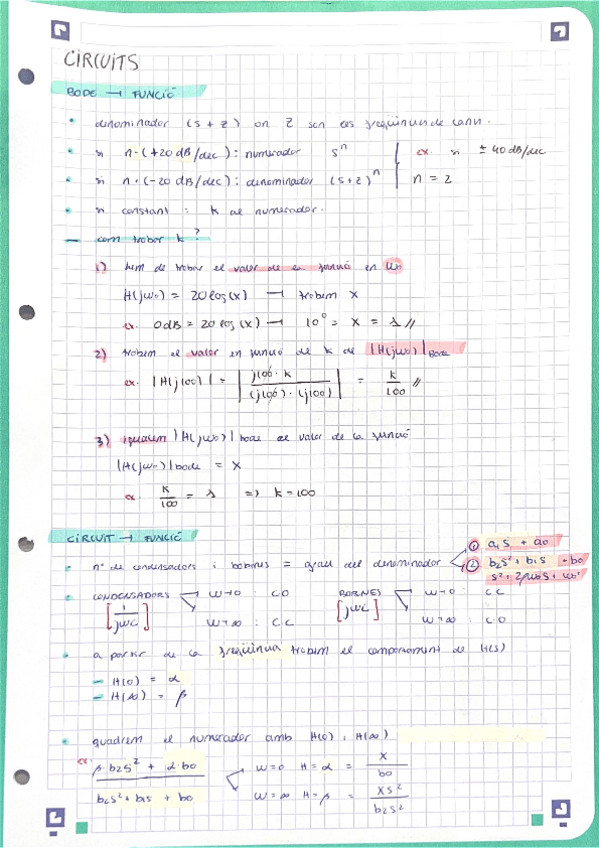 CIRCUITS
BODE → FUNCIÓ
denominador (s + z) on z són les freqüències de canvi.
si n·(+20 dB/dec) : numerador s^n
ex. si ± 40 dB/dec
si n·(-20 dB/dec) : denominador (s+z)^n
n = 2
si constant : k al numerador.
— com trobar k?
1) hem de trobar el valor de la funció en ω₀
H(jω₀) = 20 log(x) → trobem x
ex. 0dB = 20 log(x) → 10⁰ = x = 1 //
2) trobem el valor en funció de k de |H(jω₀)|Bode
ex. |H(j100)| = | j100·k / (j100)·(j100) | = k/100 //
3) igualem |H(jω₀)| bode al valor de la funció
|H(jω₀)| bode = x
ex. k/100 = 1 => k = 100
CIRCUIT → FUNCIÓ
① a₁s + a₀
nº de condensadors i bobines = grau del denominador
② b₂s² + b₁s + b₀
s² + 2ρω₀s + ω₀²
CONDENSADORS ω→0 : C.O
BOBINES ω→0 : C.C
[1/jωC] ω→∞ : C.C
[jωC] ω→∞ : C.O
a partir de la freqüència trobem el comportament de H(s)
— H(0) = α
— H(∞) = β
quadrem el numerador amb H(0) i H(∞)
ex.
β·b₂s² + α·b₀ / b₂s² + b₁s + b₀
ω=0 H=α = x/b₀
ω=∞ H=β = xs²/b₂s²